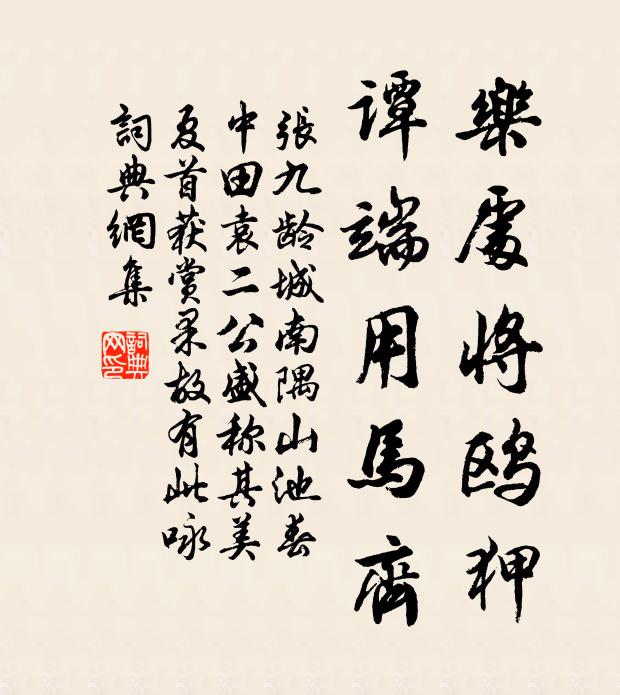 樂處將鷗狎
譚端用馬齊
張九龄城南隅山池春
中田袁二公盛称其美
夏首获賞果故有此咏
詞典網集
詞典网印